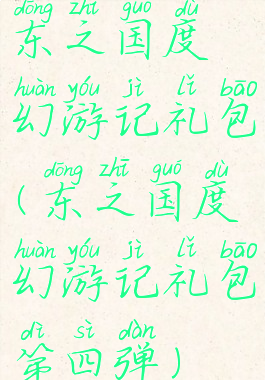 dōng zhī guó dù
东之国度
huàn yóu jì lǐ bāo
幻游记礼包
dōng zhī guó dù
(东之国度
huàn yóu jì lǐ bāo
幻游记礼包
dì sì dàn
第四弹)